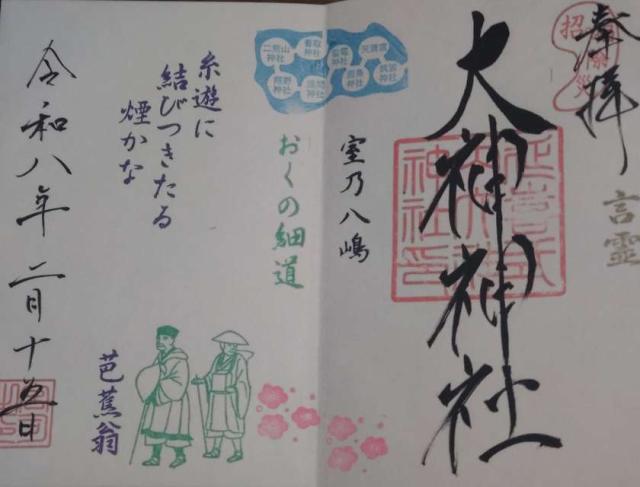 奉拝
招
災
言霊
大神神社
室乃八嶋
二荒山神社
香取神社
雷電神社
天満宮
熊野神社
浅間神社
鹿島神社
筑波神社
おくの細道
糸遊に
結びつきたる
煙かな
芭蕉翁
令和八年二月十五日